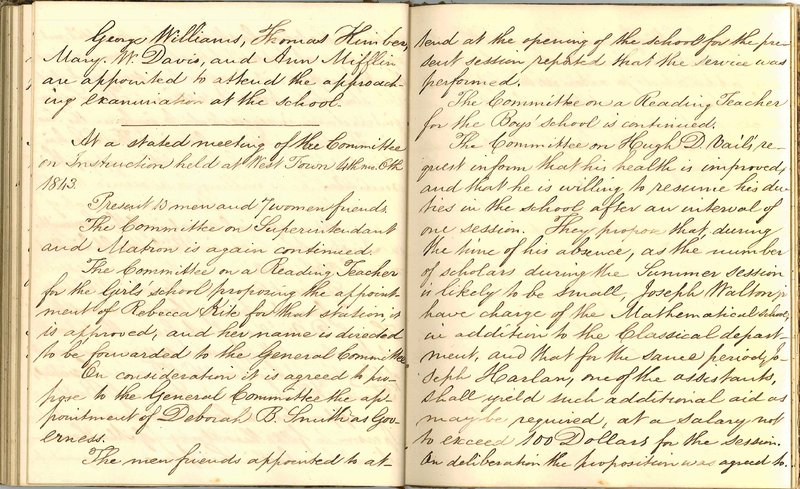 George Williams, Thomas Kimber,
Mary W. Davis, and Ann Mifflin
are appointed to attend the approach-
ing examination at the school.
At a stated meeting of the Committee
on Instruction held at West Town 4th mo. 6th
1843.
Present 13 men and 7 women friends.
The Committee on Superintendant
and Matron is again continued.
The Committee on a Reading Teacher
for the Girls' school, proposing the appoint-
ment of Rebecca Kite for that station, it
is approved, and her name is directed
to be forwarded to the General Committee.
On consideration it is agreed to pro-
pose to the General Committee the ap-
pointment of Deborah B. Smith as Gov-
erness.
The men friends appointed to at-
tend at the opening of the school for the pre-
sent session reported that the service was
performed.
The Committee on a Reading Teacher
for the Boys' school is continued.
The Committee on Hugh D. Vail's re-
quest inform that his health is improved,
and that he is willing to resume his du-
ties in the school after an interval of
one session. They propose that, during
the time of his absence, as the number
of scholars during the Summer session
is likely to be small, Joseph Walton jr
have charge of the Mathematical school,
in addition to the Classical depart-
ment, and that for the same period, Jo-
seph Harlan, one of the assistants,
shall yield such additional aid as
may be required, at a salary not
to exceed 100 Dollars for the session.
On deliberation the proposition was agreed to.